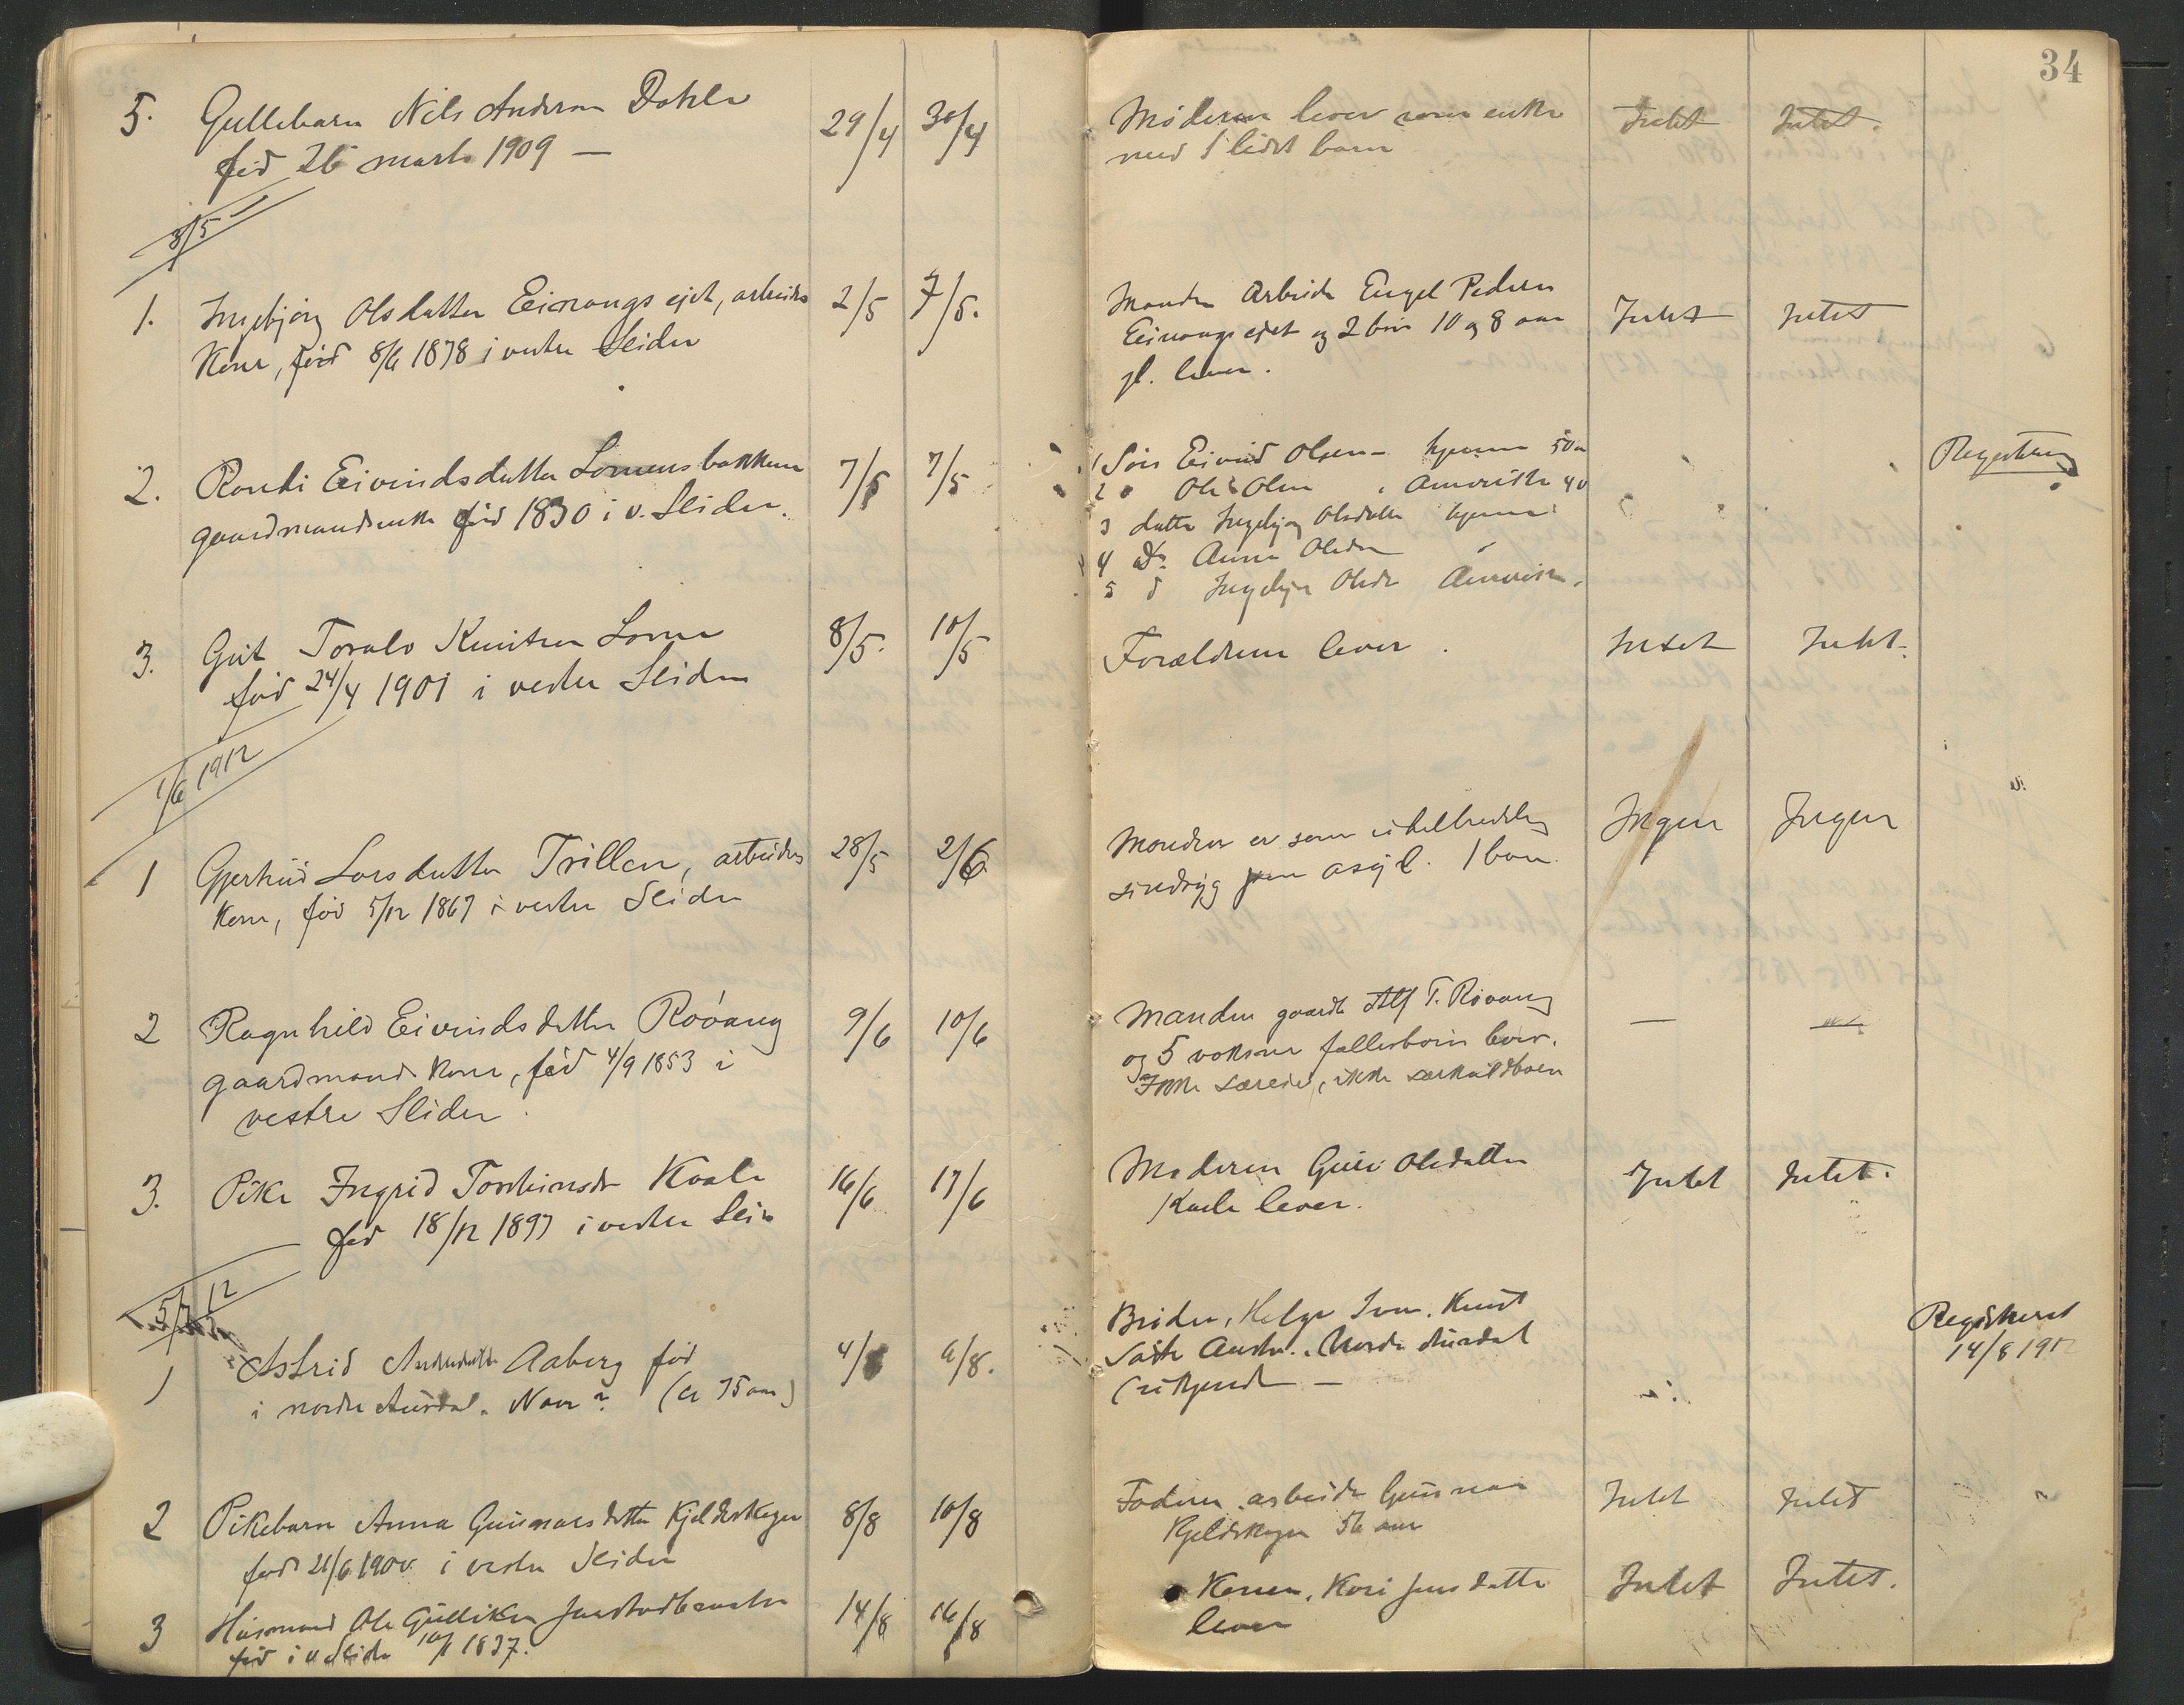 34
5. Guttebarn Nils Anderson Dahle 29/4 30/4
fød 26 marts 1909 —
Moderen lever som enke Intet Intet.
med 1 lidet barn
3/5
1. Ingebjørg Olsdatter Einangs ejet, arbeider 2/5 7/5.
Kone, født 8/6 1878 i vestre Slidre
Manden Arbeider Engel Pedersen
Einangsejet og 2 børn 10 og 8 aar Intet Intet
gl. lever.
2. Rondi Eivindsdatter Lomensbakken 7/5 7/5
gaardmandsenke fød 1830 i v. Slidre.
1 Søn Eivind Olsen - hjemme 50 Registrering
2 " Ole Olsen i Amerika 40
3 datter Ingebjørg Olsdatter hjemme
4 Do Anna Olsdr "
5 d Ingebjør Olsdr Amerika.
3. Gut Toralv Knutsen Lome 8/5. 10/5
fød 24/4 1901 i vestre Slidre
Forældrene lever. Intet Intet.
1/6 1912
1 Gjertrud Larsdatter Trillen, arbeiders 28/5 2/6
Kone, fød 5/12 1867 i vestre Slidre
Manden er som uhelbredelig Ingen Ingen
sindsyg paa asyl. 1 barn.
2 Ragnhild Eivindsdatter Røvang 9/6 10/6
gaardmands Kone, fød 4/9 1853 i
vestre Slidre.
Manden gaardb Alf T. Røvang — —
og 5 voksne fællesbørn lever.
Ikke særeie, ikke særkuldbørn
3. Pike Ingrid Torsteinsdr Kvale 16/6 17/6
fød 18/12 1897 i vestre Slidre
Moderen Guri Olsdatter Intet Intet.
Kvale lever.
5/7 12
1 Astrid Andersdatter Aaberg fød 4/8 6/8.
i nordre Aurdal. Naar? (ca 75 aar)
Brødre, Helge Iver. Knut Registreret
Søster . Nordre Aurdal 14/8 1912
(ukjendt —
2 Pikebarn Anna Gunnarsdatter Kjeldeskogen 8/8 10/8
fød 21/6 1900 i vestre Slidre
Faderen arbeider Gunnar Intet Intet
Kjeldskogen 56 aar
3 Husmand Ole Gulliksen 14/8 16/8
fød i v Slidre 1837.
Konen, Kari Jensdatter Intet Intet.
lever